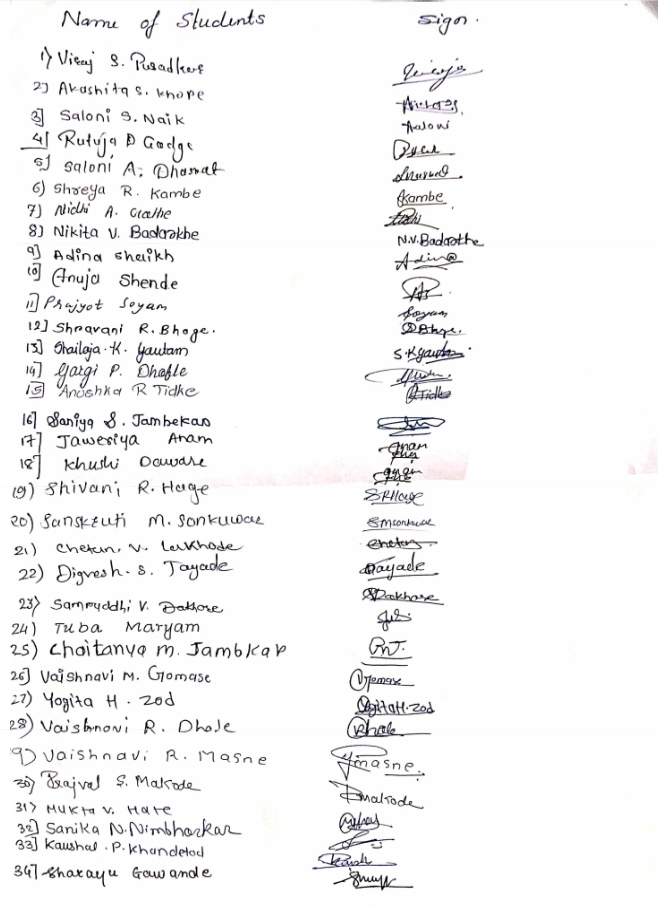 Name of Students Sign.
1) Viraj S. Pusadkar
2) Akashita S. Khope
3] Saloni S. Naik Saloni
4] Rutuja D Gadge
5] Saloni A. Dhamat
6) Shreya R. Kambe Kambe
7) Nidhi A.
8) Nikita V. Badrakhe N.V.Badrakhe
9) Adina Sheikh Adina
10] Anuja Shende
11] Prajyot Soyam Soyam
12] Shravani R. Bhoge.
13] Shailaja. K. Gautam S.K.Gautam
14] Gargi P. Dhable
15] Anushka R Tidke RTidke
16] Saniya S. Jambekar
17] Jaweriya Anam Anam
18] Khushi Daware
19) Shivani R. Hage SRHage
20) Sanskruti M. Sonkuwar SMSonkuwar
21) Chetan. V. Lerkhode Chetan
22) Digvesh. S. Tayade Tayade
23) Samruddhi V. Dakhore SDakhore
24) Tuba Maryam
25) Chaitanya M. Jambkar
26] Vaishnavi M. Gomase VGomase
27) Yogita H. Zod YogitaH.Zod
28) Vaishnavi R. Dhole
9) Vaishnavi R. Masne masne.
30) Prajval S. Makode Pmakode
31) Mukta V. Hare
32] Sanika N. Nimbharkar
33] Kaushal. P. Khandelod
34] Sharayu Gawande